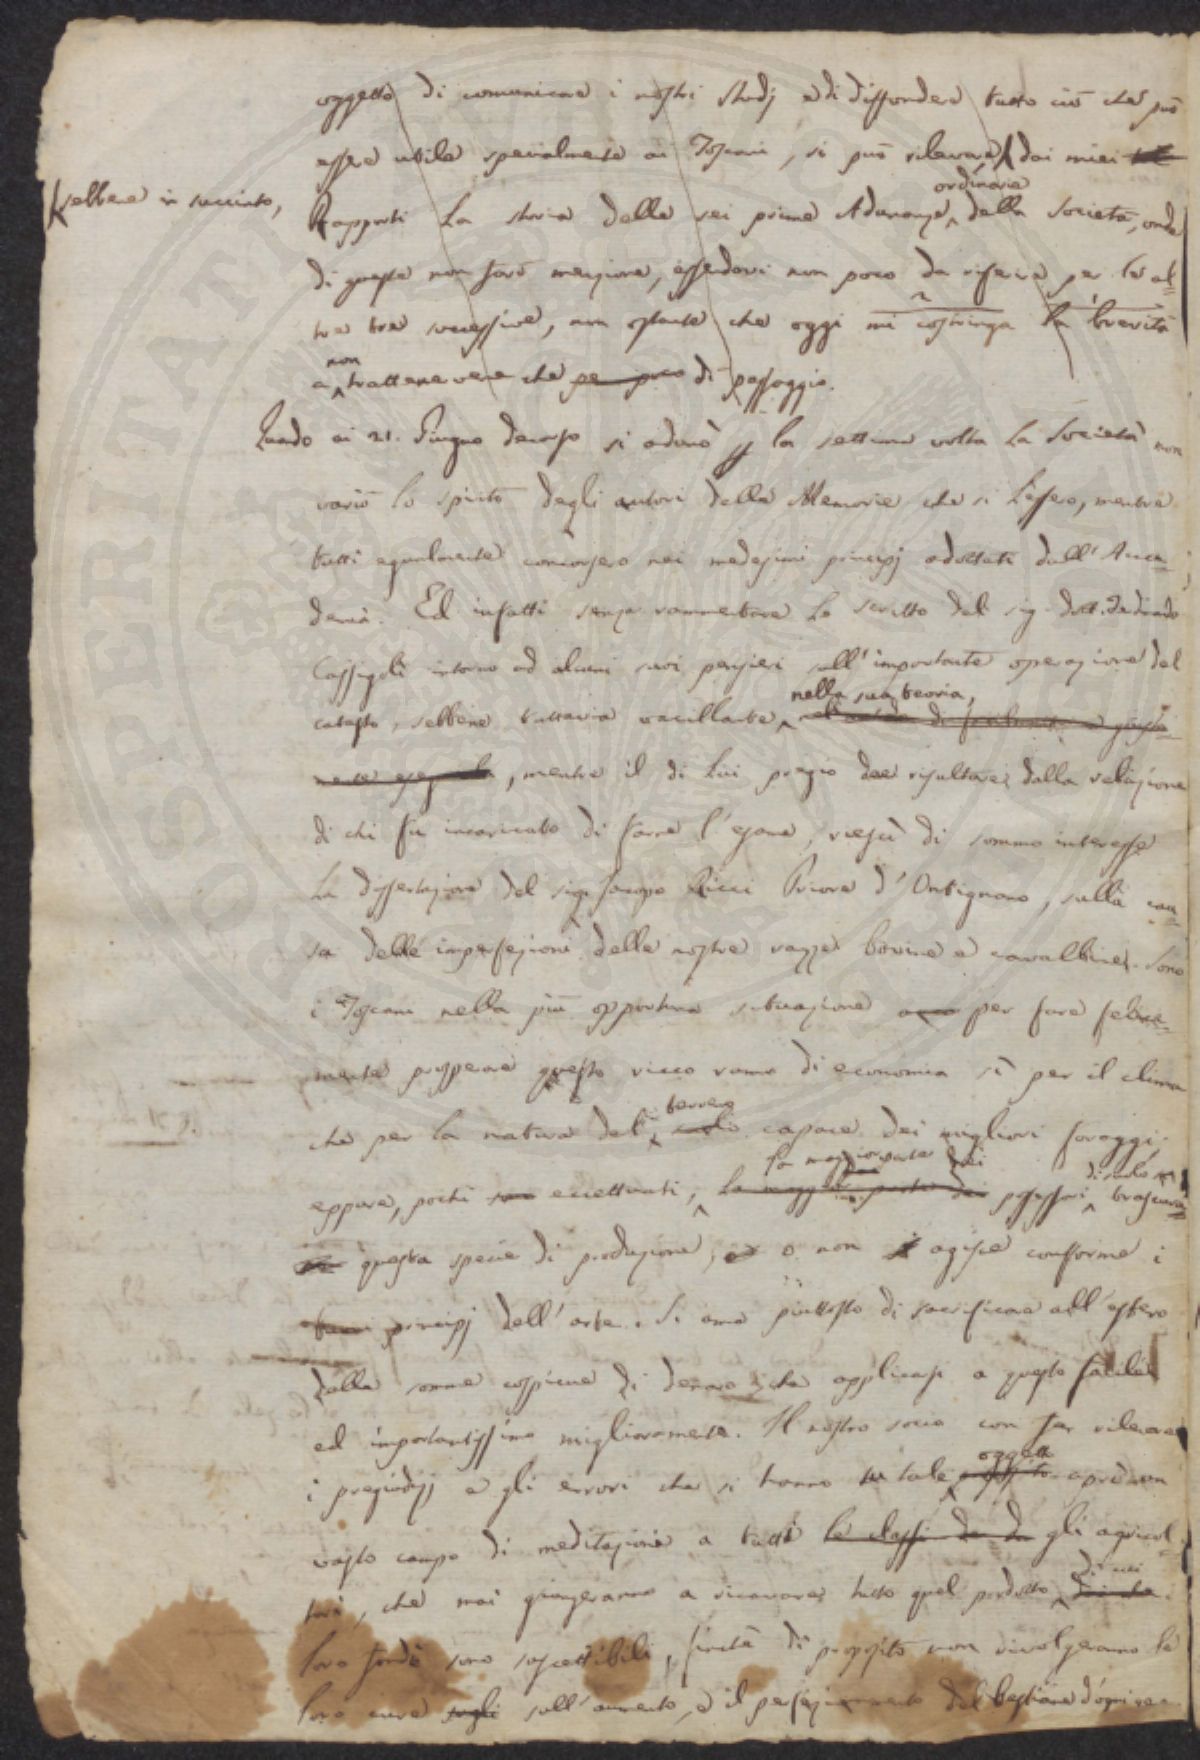 oggetto di comunicare i nostri studj e di diffondere tutto ciò che può
essere utile specialmente ai Toscani, si può rilevare dai miei
sebbene in succinto,
ordinarie
Rapporti la storia delle sei prime Adunanze della Società, onde
di queste non farò menzione, essendovi non poco da riferire per le al=
tre tre successive, non ostante che oggi mi costringa la brevità
non
a trattenervene che per poco di passaggio.
Quando ai 21. Giugno decorso si adunò per la settima volta la Società non
variò lo spirito degli autori delle Memorie che si lessero, mentre
tutti egualmente concorsero nei medesimi principj adottati dall'Acca=
demia. Ed infatti senza rammentare lo scritto del sig. dott.
Cassigoli intorno ad alcuni suoi pensieri sull'importante operazione del
nella sua teoria,
catasto, sebbene tuttavia vacillante
, mentre il di lui pregio dee risultare dalla relazione
di chi fu incaricato di farne l'esame, riescì di sommo interesse
la dissertazione del sig. Jacopo Ricci Priore d'Ortignano, sulla cau=
sa delle imperfezioni delle nostre razze bovine e cavalline. Sono
i Toscani nella più opportuna situazione per fare felice=
mente prosperare questo ricco ramo di economia sì per il clima
terreno
che per la natura del capace dei migliori foraggi;
la maggior parte dei
di suolo
eppure, pochi eccettuati, la maggior parte dei possessori trascura
questa specie di produzione, o non agisce conforme i
principj dell'arte. Si ama piuttosto di sacrificare all'estero
delle somme cospicue di denaro che applicarsi a questo facile
ed importantissimo miglioramento. Il nostro socio con far rilevare
oggetto
i pregiudizj e gli errori che si hanno su tale aprè un
vasto campo di meditazione a tutti le classi gli agricol=
di cui
tori, che mai giungeranno a ricavare tutto quel prodotto
loro fondi sono suscettibili, finchè di proposito non rivolgeranno le
loro cure sull'aumento, e il perfezionamento del bestiame d'ogni